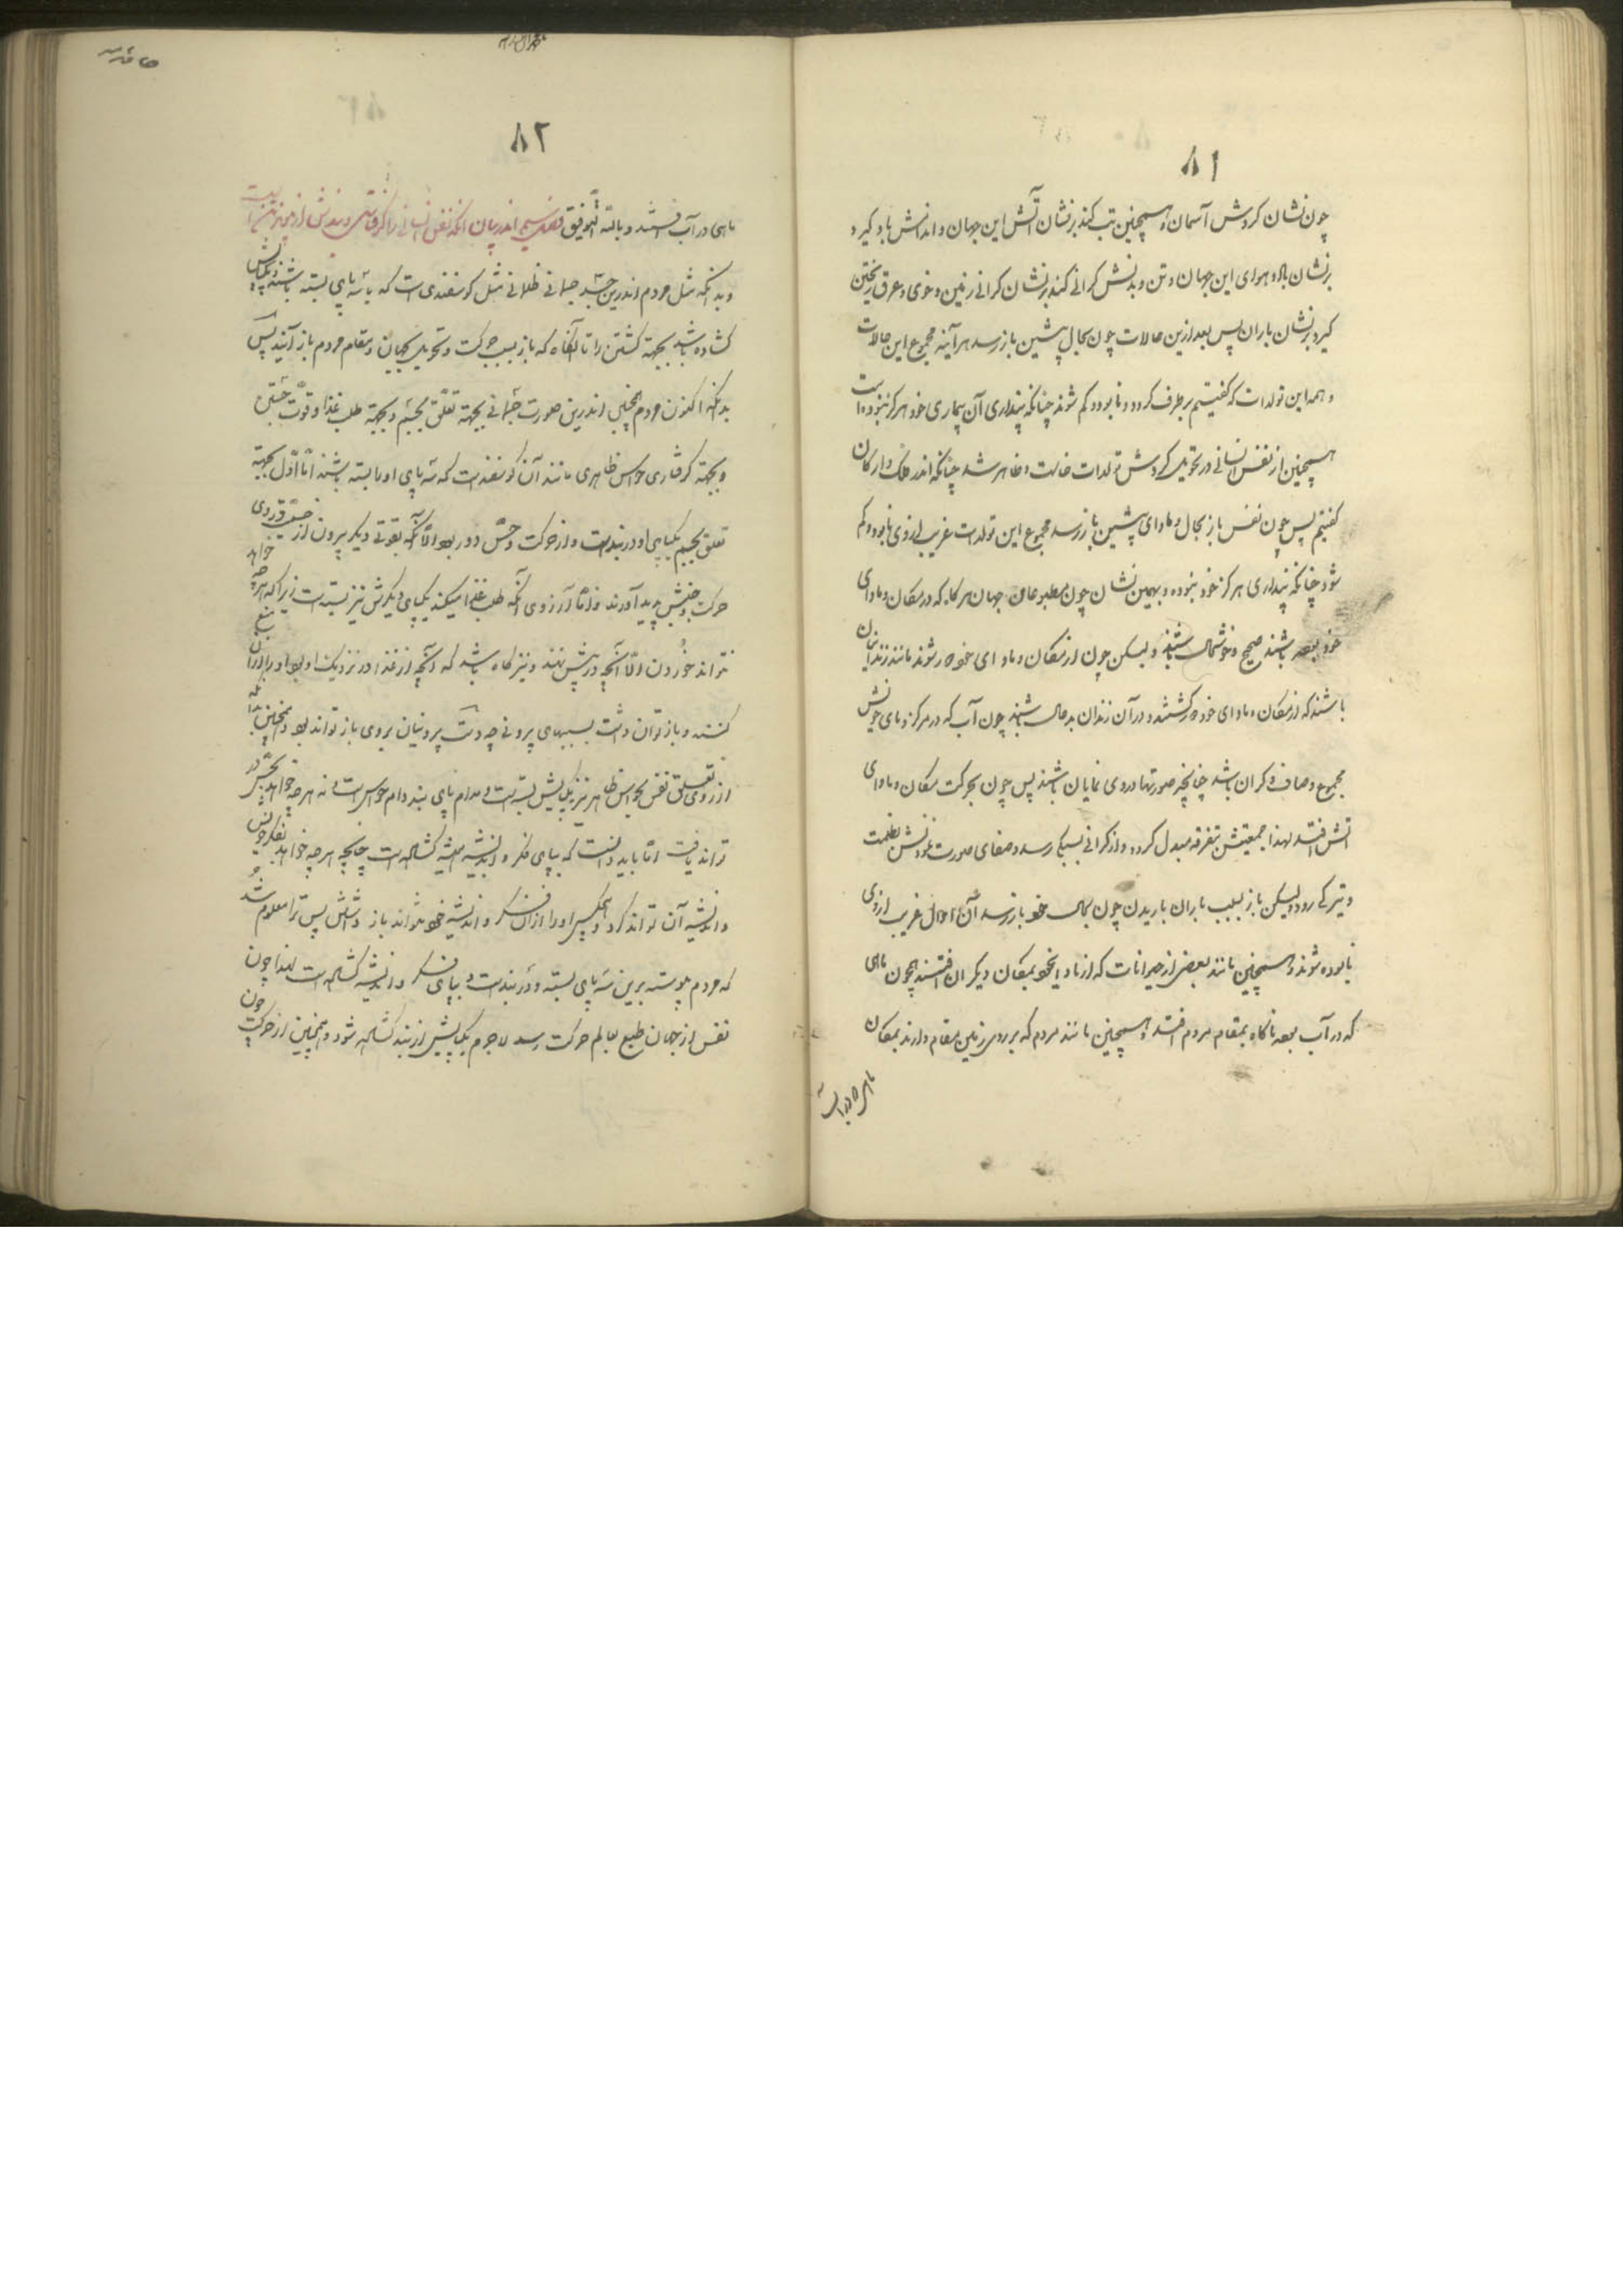 ۸۱
چون نشان کردش آسمان و همچنین تب کند بر نشان آتش این جهان و اندامش باد کیرد
بر نشان باد و هوای این جهان و تن و بدنش کرانی کند بر نشان کرانی زمین و خوی و عرق ریختن
کیرد بر نشان باران پس بعد ازین حالات چون بحال پیشین باز رسد هر آینه مجموع این حالات
و همه این تولدات که کفتیم بر طرف کردد و نابود و کم شوند چنانکه پنداری آن بیماری خود هرکز نبوده است
همچنین از نفس انسانی در تحویل کردش تولدات ظاهر شد چنانکه اندر فلک و ارکان
کفتیم پس چون نفس باز بحال و ماوای پیشین باز رسد مجموع این تولدات غریب از وی نابود و کم
شود چنانکه پنداری هرکز خود نبوده و بهمین نشان چون مطبوعات جهان هرکاه که در مکان و ماوای
خود بوده باشند صحیح و خوشحال باشند ولیکن چون از مکان و ماوای خود دور شوند مانند زندانیان
باشند که از مکان و ماوای خود دور کشتند و در آن زندان بدحال باشند چون آب که در مرکز و مای خویش
مجموع و صاف و کران باشد چنانچه صورتها در وی نمایان باشند پس چون بحرکت مکان و ماوای
آتش افتد لهذا جمعیتش بتفرقه مبدل کردد و از کرانی بسبکی رسد و صفای صورت نمودنش بظلمت
و تیرکی رود ولیکن باز بسبب باران باریدن چون بحال خود باز رسد آن احوال غریب از وی
نابوده شوند و همچنین مانند بعضی از حیوانات که از ماوای خود بمکان دیکران افتند همچون ماهی
که در آب بود ناکاه بمقام مردم افتد و همچنین مانند مردم که بر روی زمین مقام دارند بمکان
ماهی در آب
۸۲
ماهی در آب افتند و بالله التوفیق فصل سیم اندر بیان آنکه نفس انسانی را کرفتاری و بندش از چیست
و بدانکه مثل مردم اندرین جسد جسمانی ظلمانی مثل کوسفندی است که با سه پای بسته باشند و یکپایش
کشاده باشد بجهة کشتن را تا آنکاه که باز بسبب حرکت و تحویل بجهان و مقام مردم باز آیند پس
بدانکه اکنون مردم همچنین اندرین صورت جسمانی بجهة تعلق بجسم و بجهة طلب غذا و قوت حسی
و بجهة کرفتاری حواس ظاهری مانند آن کوسفند است که سه پای او را بسته باشند اما اول بجهة
تعلق بجسم یکپای او در بند است و از حرکت و حس دور بود الا آنکه بقوتی دیکر بیرون از
حرکت و جنبش پدید آورند و اما از روی آنکه طلب غذا میکند یکپای دیکرش نیز بسته است زیرا که هرچه خواهد
نتواند خوردن الا آنچه در پیش نهند و نیز کاه باشد که آنچه از غذا در نزدیک او بود او را از آن منع
کنند و باز توان داشت بسببهای بیرونی چه دست بیرونیان بروی باز تواند بود و همچنین
از روی تعلق نفس بحواس ظاهر نیز یکپایش بسته است و مدام پای بند دام حواس است و نه هرچه خواهد بحس در
تواند یافت اما باید دانست که بپای فکر و اندیشه همیشه کشاده است چنانچه هرچه خواهد بفکر خویش
و اندیشه آن تواند کرد و هیچکس او را از آن فکر و اندیشه خود نتواند باز داشتن پس ترا معلوم شد
که مردم پیوسته برین سه پای بسته و در بند است و بپای فکر و اندیشه کشاده است لهذا چون
نفس از جهان طبع بعالم حرکت رسد لاجرم یکپایش از بند کشاده شود و همچنین از حرکت چون